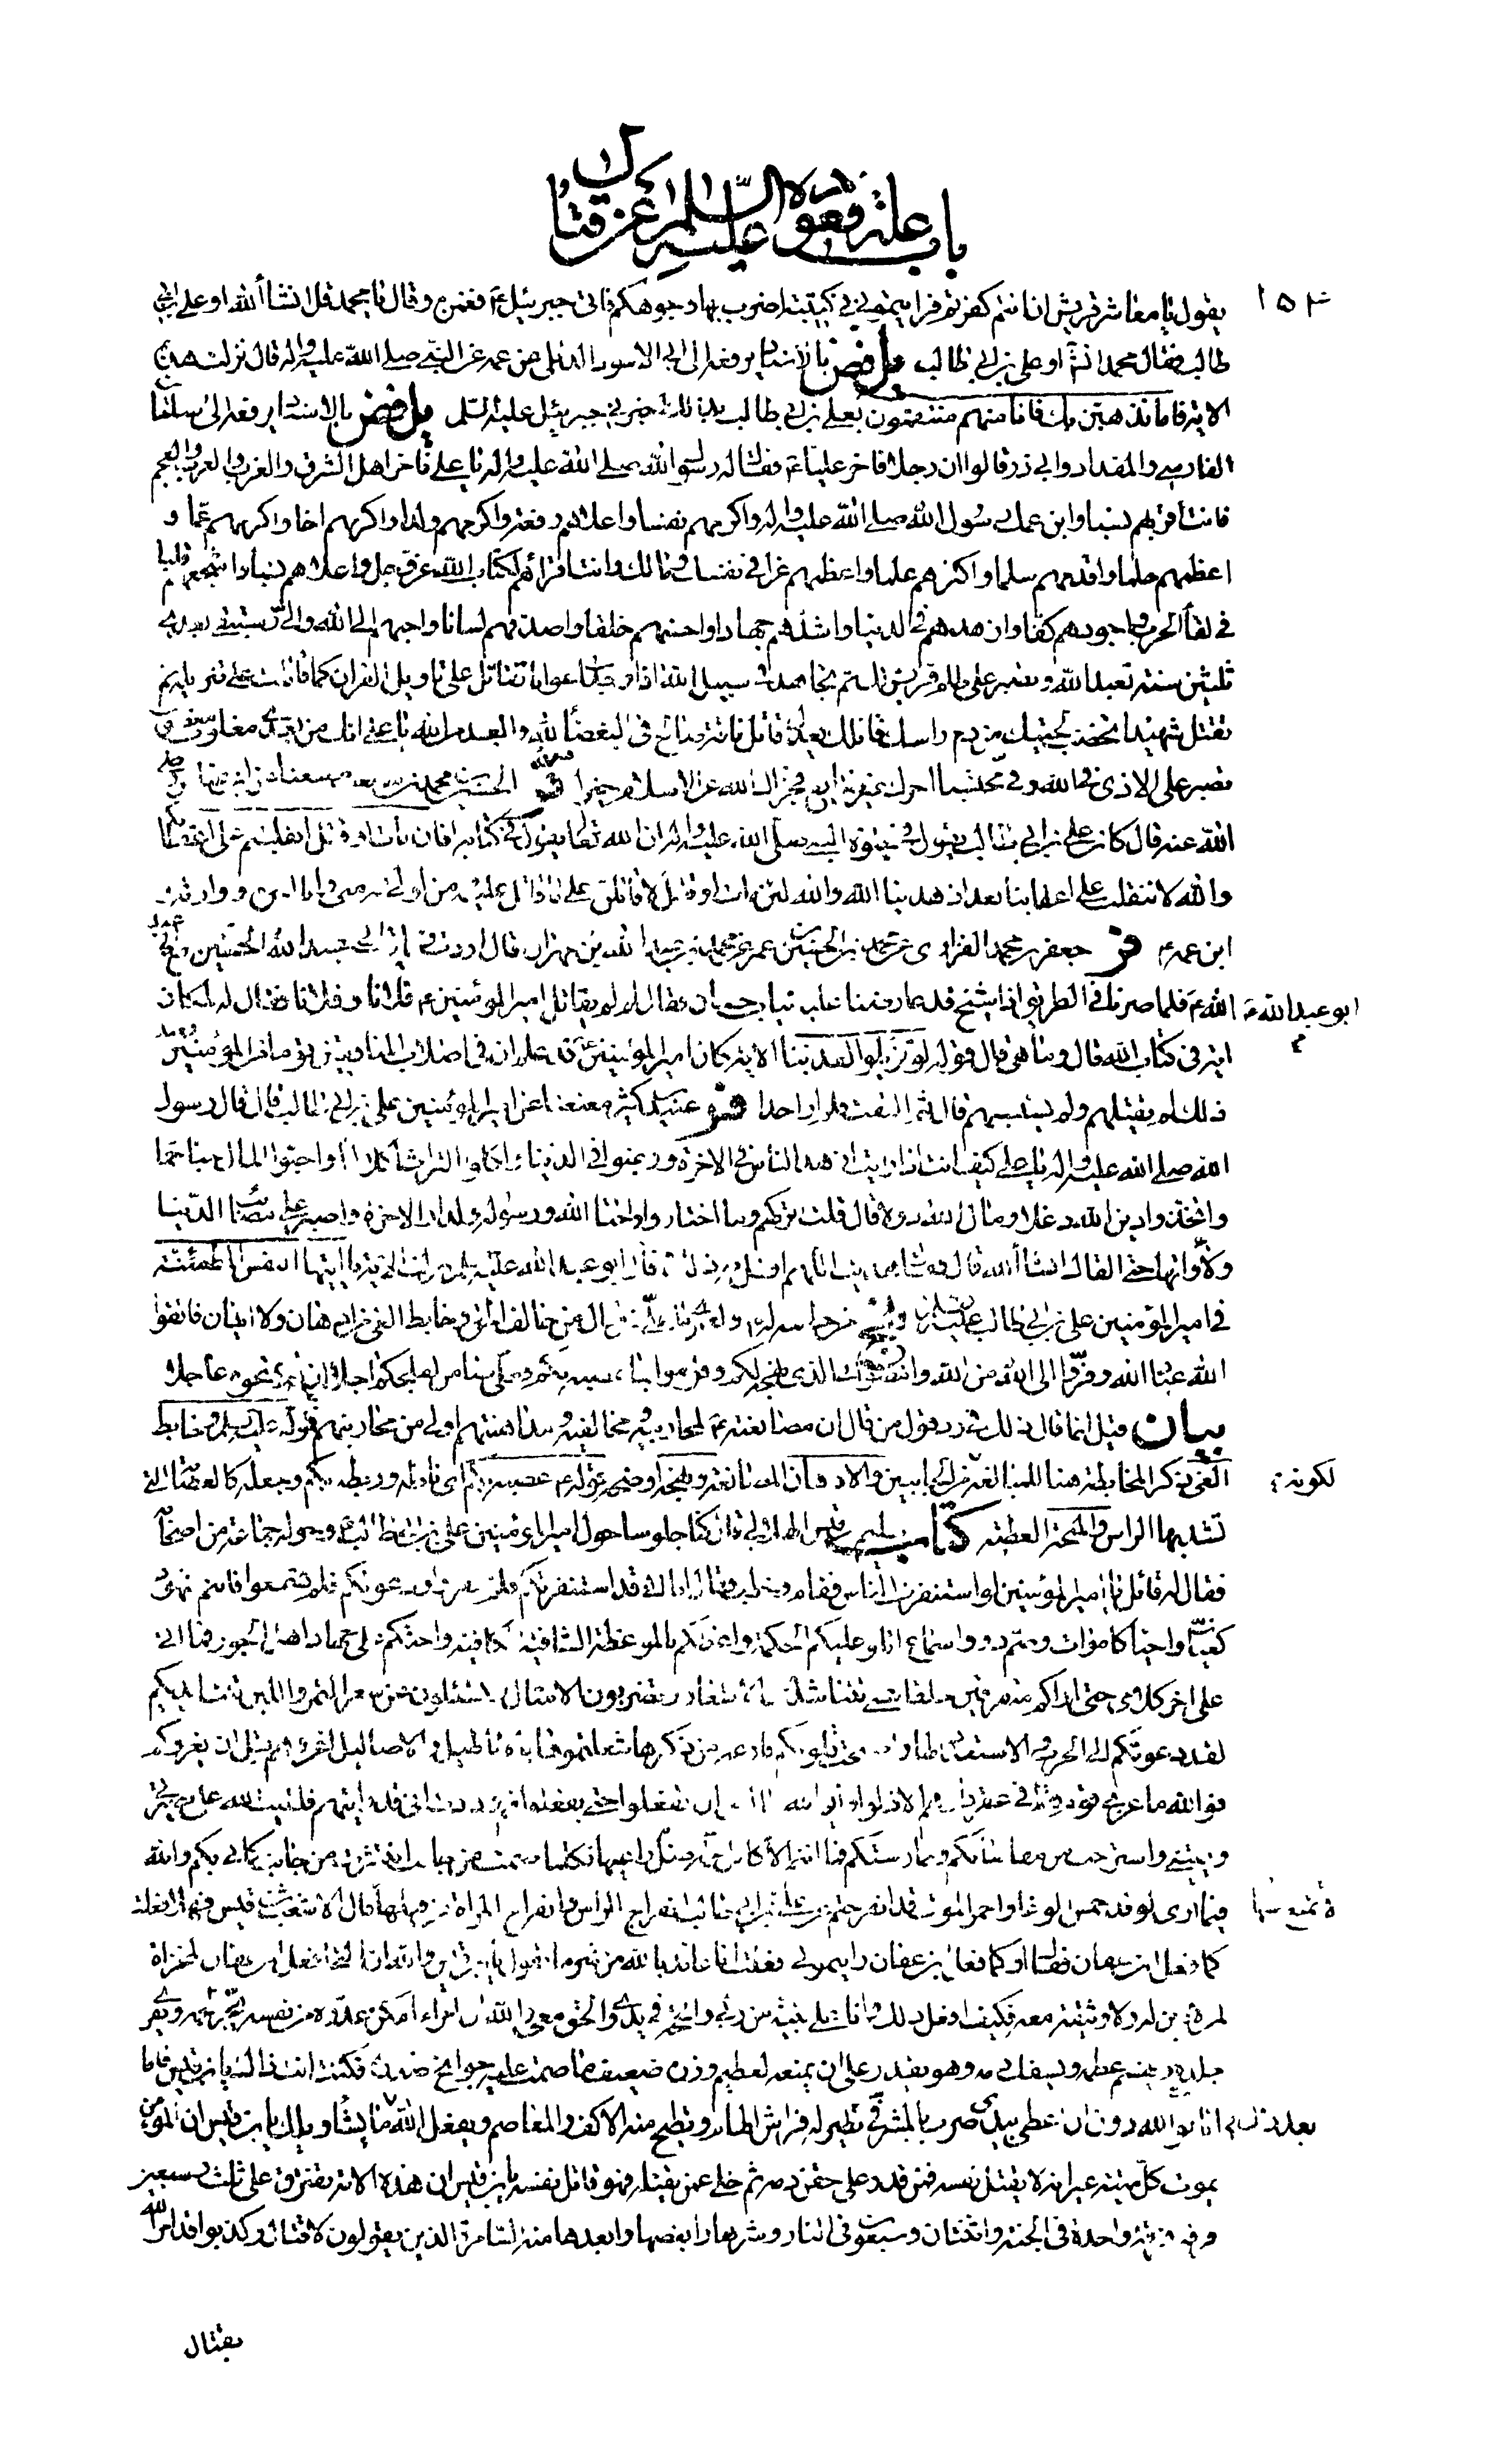 باب علة قعوده عليه السلام عن قتال
١٥٣
يقول يا معاشر قريش ان انتم كفرتم فرايتموني في كتيبة اضرب بها وجوهكم فاتى جبرئيل ع فغمزه وقال يا محمد قل انشاء الله او علي بن ابي
طالب فقال محمد او علي بن ابي طالب بل فض بالاسناد يرفعه الى ابي الاسود الدئلي عن عمه عن النبي صلى الله عليه واله قال نزلت هذه
الاية فاما نذهبن بك فانا منهم منتقمون بعلي بن ابي طالب بذلك اخبرني جبرئيل عليه السلم يل فض بالاسناد يرفعه الى سلمان
الفارسي والمقداد وابي ذر قالوا ان رجلا فاخر عليا ع فقال له رسول الله صلى الله عليه واله يا علي فاخر اهل الشرق والغرب والعرب والعجم
فانت اقربهم نسبا وابن عمك رسول الله صلى الله عليه واله واكرمهم نفسا واعلاهم رفعة واكرمهم ولدا واكرمهم اخا واكرمهم عما و
اعظمهم حلما واقدمهم سلما واكثرهم علما واعظمهم عزا في نفسك ومالك وانت اقراهم لكتاب الله عز وجل واعلاهم نسبا واشجعهم قلبا
في لقاء الحرب واجودهم كفا وازهدهم في الدنيا واشدهم جهادا واحسنهم خلقا واصدقهم لسانا واحبهم الى الله والي وستبقى بعدي
ثلثين سنة تعبد الله وتصبر على ظلم قريش لك ثم تجاهد في سبيل الله اذا وجدت اعوانا تقاتل على تاويل القران كما قاتلت على تنزيله ثم
تقتل شهيدا تخضب لحيتك من دم راسك قاتلك يعدل قاتل ناقة صالح في البغضاء لله والبعد من الله يا علي انك من بعدي مغلوب مغصوب
تصبر على الاذى في الله وفي محتسبا اجرك غير ضايع فجزاك الله عن الاسلام خيرا فر الحسين بن محمد بن
الله عنه قال كان علي بن ابي طالب يقول في حيوة النبي صلى الله عليه واله ان الله تعالى يقول في كتابه افان مات او قتل انقلبتم على اعقابكم
والله لا ننقلب على اعقابنا بعد اذ هدينا الله والله لئن مات او قتل لاقاتلن على ما قاتل عليه من اولى به مني وانا اخوه ووارثه
ابن عمه ع فر جعفر بن محمد الفزاري عن محمد بن الحسين بن عمر عن محمد بن عبد الله بن مهران قال اردت زيارة ابي عبد الله الحسين مع
ابو عبد الله ع الله ع فلما صرنا في الطريق اذا شيخ قد عارضنا عليه ثياب حسان فقال لم لم يقاتل امير المؤمنين ع فلانا وفلانا فقال له لمكان
اية في كتاب الله قال وما هي قال قوله لو تزيلوا لعذبنا الاية كان امير المؤمنين ع قد علم ان في اصلاب المنافقين قوما من المؤمنين فعند
ذلك لم يقتلهم ولم يستسبهم قال ثم التفت فلم ار احدا فر عبيد بن كثير معنعنا عن امير المؤمنين علي بن ابي طالب قال قال رسول
الله صلى الله عليه واله يا علي كيف انت اذا رايت ازهد الناس في الاخرة ورغبوا في الدنيا واكلوا التراث اكلا لما واحبوا المال حبا جما
واتخذوا دين الله دغلا ومال الله دولا قال قلت اتركهم وما اختاروا واختار الله ورسوله والدار الاخرة واصبر على مصائب الدنيا
ولاواها حتى القاك انشاء الله قال فقال هديت اللهم افعل به ذلك فقال ابو عبد الله عليه السلم نزلت الاية يا ايتها النفس المطمئنة
في امير المؤمنين علي بن ابي طالب عليه السلم نهج من خطبة له ع ولعمري ما علي من قتال من خالف الحق وخابط الغي من ادهان ولا ايهان فاتقوا
الله عباد الله وفروا الى الله من الله وامضوا في الذي نهجه لكم وقوموا بما عصبه بكم فعلي ضامن لفلجكم اجلا ان لم تمنحوه عاجلا
بيان قيل انما قال ذلك في رد قول من قال ان مصانعته ع لمحاربيه ومخالفيه ومداهنتهم اولى من محاربتهم قوله عليه السلم وخابط
لكونه الغي ذكر المخابطة هنا للمبالغة من الجانبين والادهان المصانعة ونهجه اوضحه قوله ع عصبه بكم اي ناطه وربطه بكم وجعله كالعصابة التي
تشد بها الراس والمنحة العطية كتاب سليم بن قيس الهلالي قال كنا جلوسا حول امير المؤمنين علي بن ابي طالب وحوله جماعة من اصحابه
فقال له قائل يا امير المؤمنين لو استنفرت الناس فقام وخطب وقال الا اني قد استنفرتكم فلم تنفروا ودعوتكم فلم تسمعوا فانتم شهود
كغياب واحياء كاموات وصم ذوو اسماع اتلو عليكم الحكمة واعظكم بالموعظة الشافية الكافية واحثكم على جهاد اهل الجور فما اتي
على اخر كلامي حتى اراكم متفرقين حلقا شتى تتناشدون الاشعار وتضربون الامثال وتسئلون عن سعر التمر واللبن تبت ايديكم
لقد دعوتكم الى الحرب والاستعداد لها واصبحت قلوبكم فارغة من ذكرها شغلتموها بالاباطيل والاضاليل اغزوهم قبل ان يغزوكم
فوالله ما غزي قوم قط في عقر دارهم الا ذلوا وايم الله ما اظن ان تفعلوا حتى يفعلوا ثم وددت اني قد رايتهم فلقيت الله على بصيرتي
ويقيني واسترحت من مقاساتكم وممارستكم فما انتم الا كابل جمة ضل راعيها فكلما ضمت من جانب انتشرت من جانب كاني بكم والله
فيما ارى لو قد حمس الوغا واحمر الموت قد انفرجتم عن علي بن ابي طالب انفراج الراس وانفراج المراة عن قبلها قال الاشعث بن قيس فهلا فعلت
كما فعل ابن عفان فقال او كما فعل ابن عفان رايتموني فعلت انا عائذ بالله من شر ما تقول يا ابن قيس والله ان التي فعل ابن عفان لمخزاة
لمن لا دين له ولا وثيقة معه فكيف افعل ذلك وانا على بينة من ربي والحجة في يدي والحق معي والله ان امرءا امكن عدوه من نفسه يجز لحمه ويفري
جلده ويهشم عظمه ويسفك دمه وهو يقدر على ان يمنعه لعظيم وزره ضعيف ما ضمت عليه جوانح صدره فكن انت ذاك يا ابن قيس فاما
انا فوالله دون ان اعطي بيدي ضرب بالمشرفي تطير له فراش الهام وتطيح منه الاكف والمعاصم ويفعل الله بعد ما يشاء ويلك يا ابن قيس ان المؤمن
يموت كل ميتة غير انه لا يقتل نفسه فمن قدر على حقن دمه ثم خلى عمن يقتله فهو قاتل نفسه يا ابن قيس ان هذه الامة تفترق على ثلث وسبعين
فرقة فرقة واحدة في الجنة واثنتان وسبعون في النار وشرها وابغضها وابعدها منه السامرة الذين يقولون لا قتال وكذبوا قد امر الله
بقتال